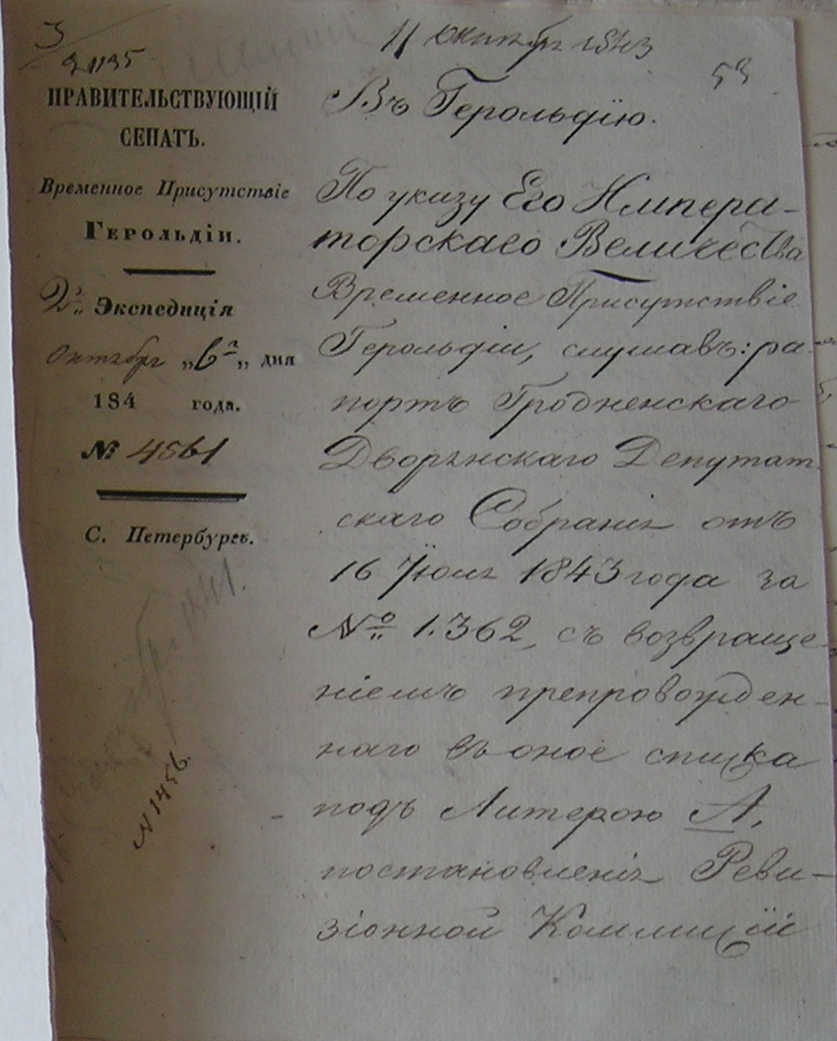 3
9 1135
11 октября 1843
53
ПРАВИТЕЛЬСТВУЮЩІЙ
СЕНАТЪ.
Временное Присутствіе
ГЕРОЛЬДІИ.
2я Экспедиція
Октября „6го„ дня
184 года.
№ 4561
С. Петербургъ.
N 1456.
Въ Герольдію.
По указу Его Импера-
торскаго Величества
Временное Присутствіе
Герольдіи, слушавъ: ра-
портъ Гродненскаго
Дворянскаго Депутат
скаго Собранія отъ
16 Іюля 1843 года за
№ 1.362, съ возвраще-
ніемъ препровожден-
наго въ оное списка
подъ Литерою А,
постановленія Реви-
зіонной Коммисіи